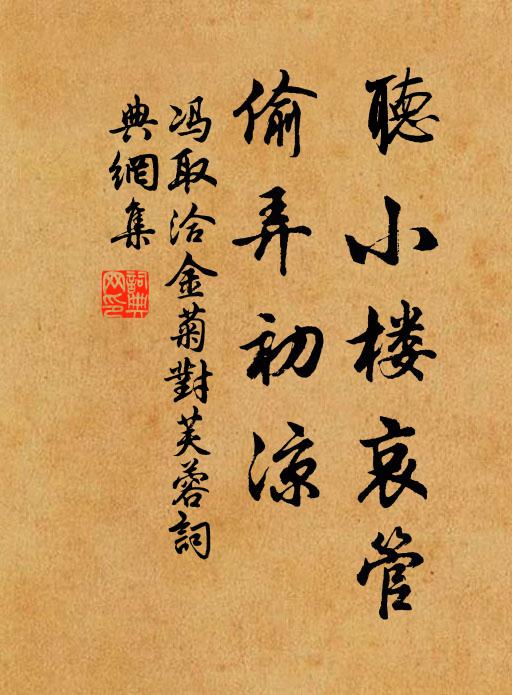 聽小楼哀管
偷弄初涼
冯取洽金菊對芙蓉詞
典網集
詞典网印